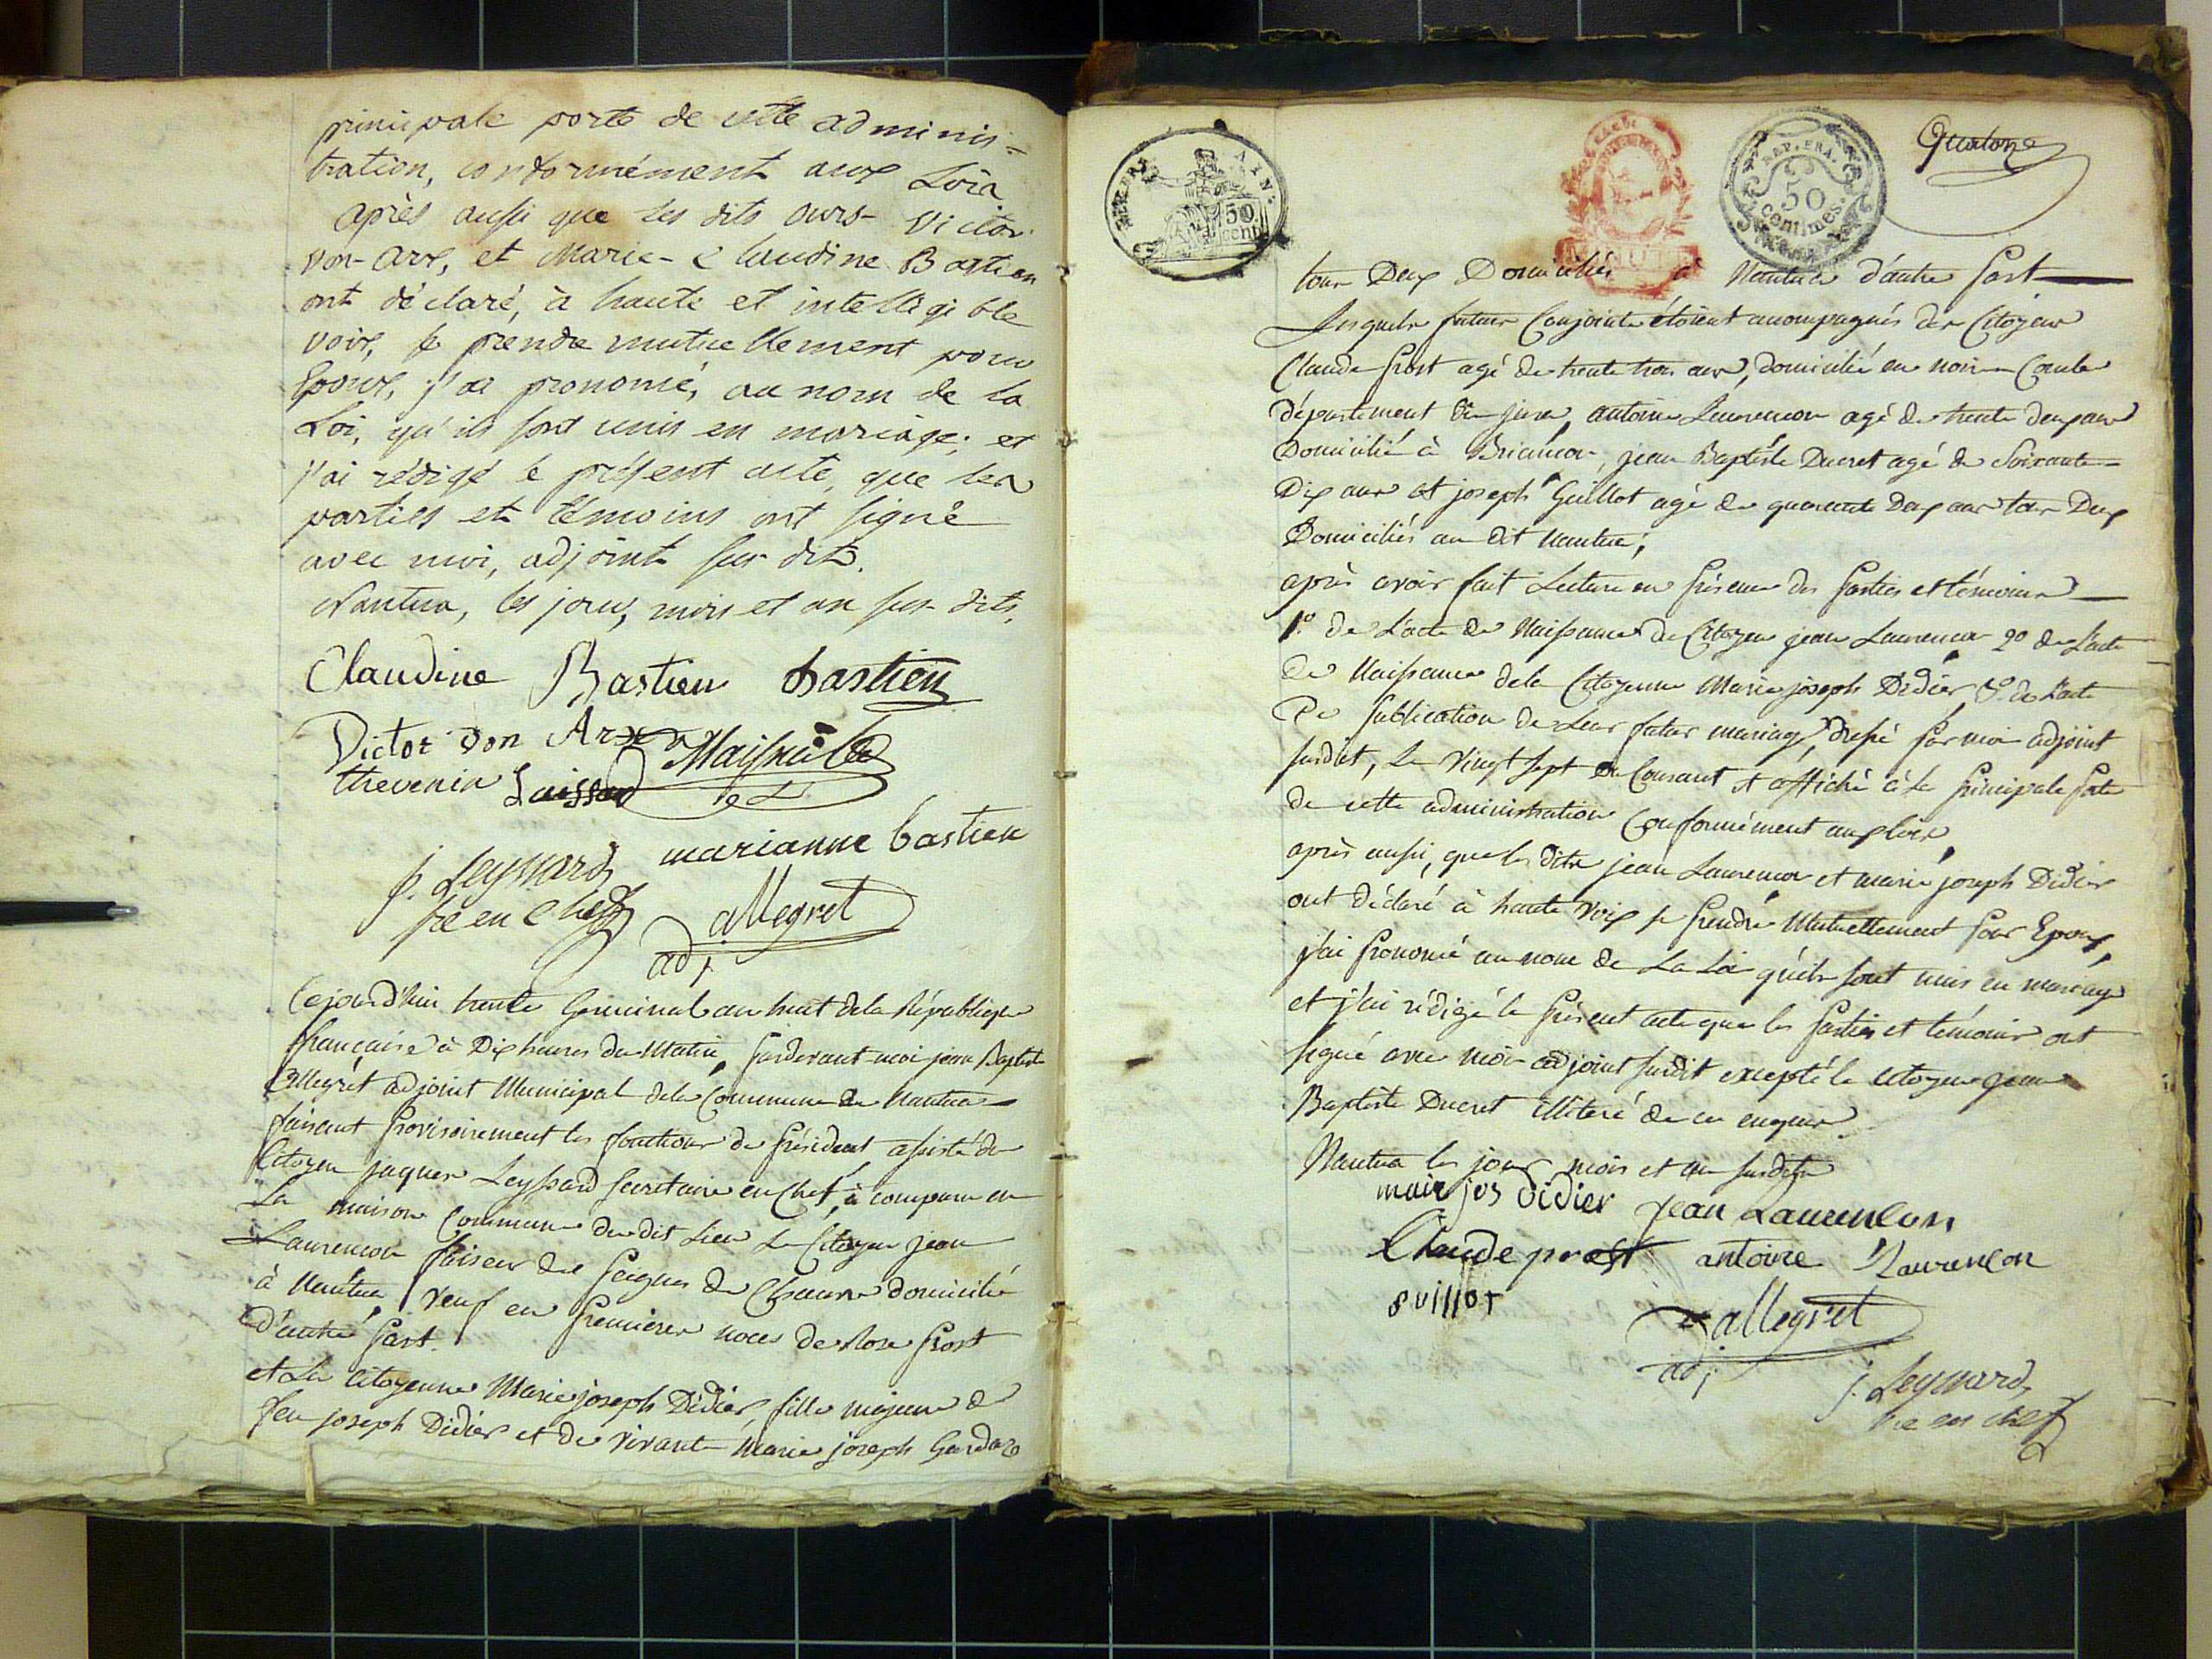 principale porte de cette adminis=
tration, conformément aux Loix
après aussi que les dits ours-Victor
von-arx, et Marie-Claudine Bastien
ont déclaré, à haute et intelligible
voix, se prendre mutuellement pour
Epoux, j'ai prononcé, au nom de la
Loi, qu'ils sont unis en mariage; et
j'ai rédigé le présent acte, que les
parties et témoins ont signé
avec moi, adjoint sus dit.
Nantua, les jour, mois et an sus-dits,
Claudine Bastien bastien
Victor von Arx
thevenin
marianne bastien
j. Leyssard
re en chef
allegret
adj
Cejourd'hui trente Germinal an huit dela République
française à Dix heures du Matin, pardevant moi jean Baptiste
Allegret adjoint Municipal dela Commune de Nantua
faisant provisoirement les fonctions de président assisté du
Citoyen jaques Leyssard secretaire en Chef, à comparu en
La maison Commune du dit Lieu Le Citoyen jean
Laurencon faiseur de peignes de Chanvre domicilié
à Nantua, veuf en premieres noces de Rose prost
d'autre part.
et La Citoyenne Marie joseph Didier, fille majeure de
feu joseph Didier et de vivante Marie joseph
Quatorze
REP. FRA.
50
centimes.
AIN
50
cent
tous Deux Domiciliés à Nantua d'autre part
Lesquels futurs Conjoints étoient accompagnés des Citoyens
Claude prost agé de trente trois ans, domicilié en Combe
département du jura, antoine Laurencon agé de trente deux ans
Domicilié à Briancon, jean Baptiste Ducret agé de Soixante
Dix ans et joseph Guillot agé de quarante Deux ans tous Deux
Domiciliés au dit Nantua;
après avoir fait Lecture en présence des parties et témoins
1.º de L'acte de Naissance du Citoyen jean Laurencon 2º de L'acte
de Naissance dela Citoyenne Marie joseph Didier, 3º de L'acte
De publication de Leur futur mariage, dressé par moi adjoint
susdit, Le vingt sept du Courant et affiché à la principale porte
de cette administration Conformément aux loix,
après aussi, que les dits jean Laurencon et marie joseph Didier
ont déclaré à haute voix se prendre Mutuellement pour Epoux,
j'ai prononcé au nom de La Loi qu'ils sont unis en mariage
et j'ai rédigé le présent acte que les parties et témoins ont
signé avec moi adjoint susdit excepté le citoyen jean
Baptiste Ducret illiteré de ce enquis
Nantua les jour mois et an susdits
marie jos didier jean Laurencon
Claude prost antoine Laurencon
guillot
allegret
adj
j. Leyssard
re en chef